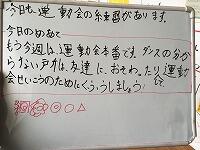 今日も運動会の練習があります。
今日のめあて
もう今週は運動会本番です。ダンスの分か
らない所は友達に、おそわったり運動
会せいこうのためにくふうしましょう